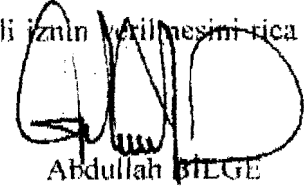 li iznin verilmesini rica
Abdullah BİLGE